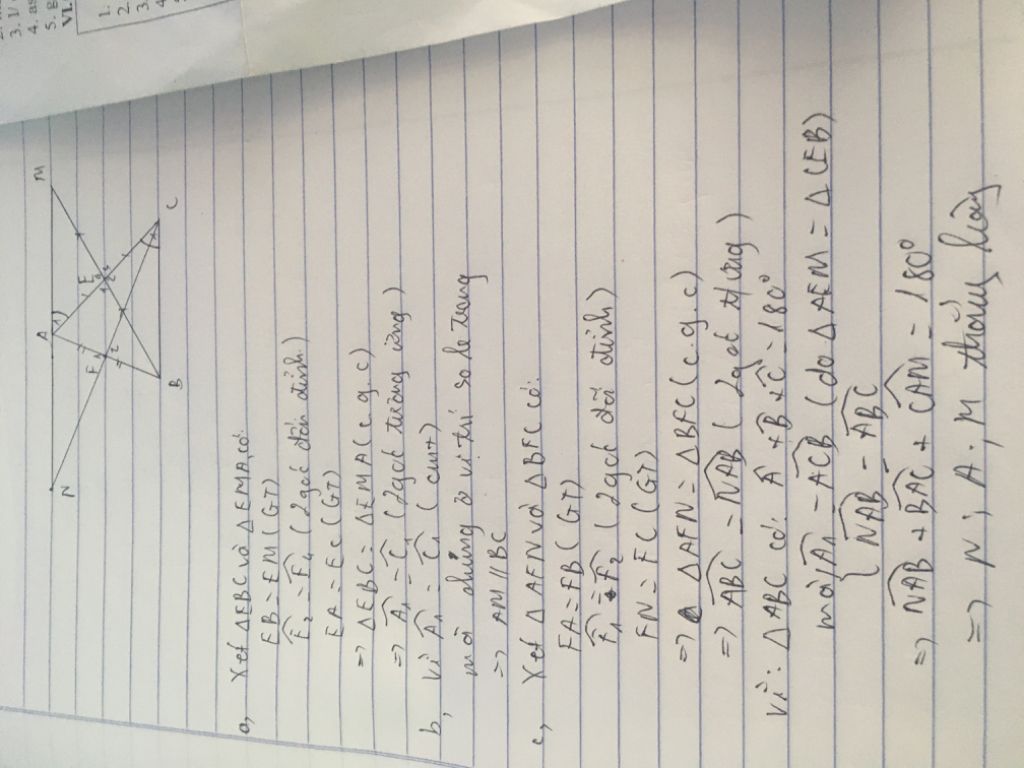 N
A
M
F
1
2
E
B
C
a, Xét ΔEBC và ΔEMA, có:
EB = EM (GT)
Ê₂ = Ê₄ (2 góc đối đỉnh)
EA = EC (GT)
=> ΔEBC = ΔEMA (c.g.c)
=> Â₁ = Ĉ₁ (2 góc tương ứng)
b, Vì Â₁ = Ĉ₁ (cmt)
mà chúng ở vị trí so le trong
=> AM // BC
c, Xét ΔAFN và ΔBFC có:
FA = FB (GT)
F̂₁ = F̂₂ (2 góc đối đỉnh)
FN = FC (GT)
=> ΔAFN = ΔBFC (c.g.c)
=> ABC = NAB (2 góc tương ứng)
Vì: ΔABC có: Â + B̂ + Ĉ = 180°
mà { Â₁ = ACB (do ΔAEM = ΔCEB)
NAB = ABC
=> NAB + BAC + CAM = 180°
=> N; A; M thẳng hàng
3.
4.
5.
VI.
1.
2.
3.
4